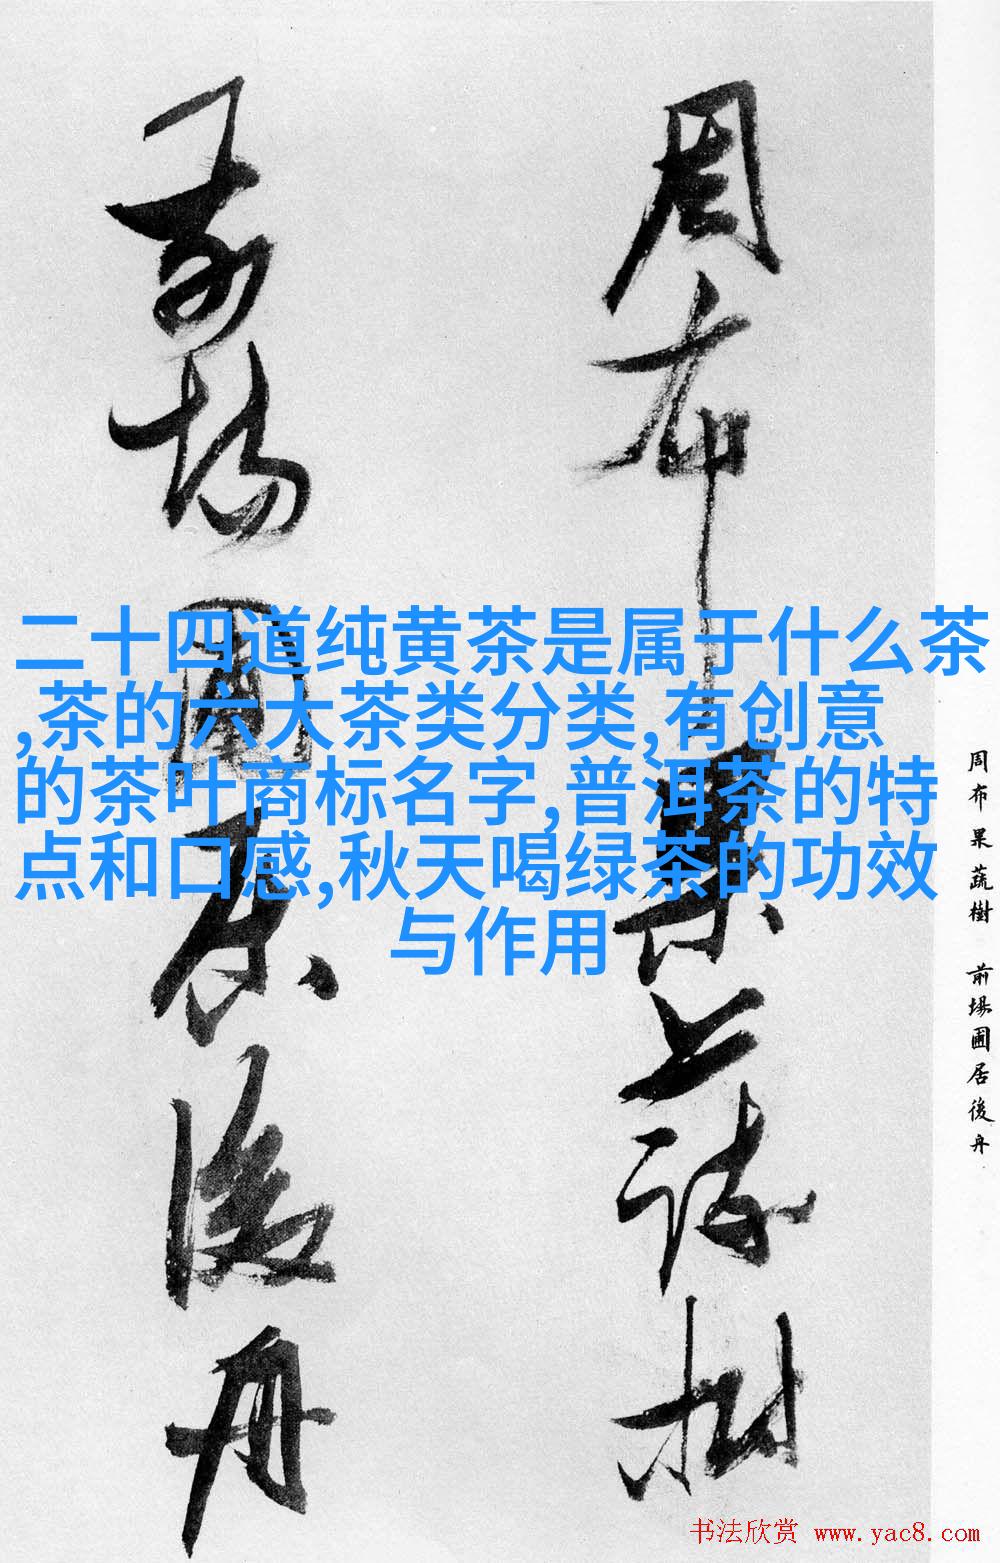 周布果蔬樹
前場圃居後舟
二十四道纯黄茶是属于什么茶
,茶的六大茶类分类,有创意
的茶叶商标名字,普洱茶的特
点和口感,秋天喝绿茶的功效
与作用
周布果蔬樹 前場圃居後舟
书法欣赏 www.yac8.com